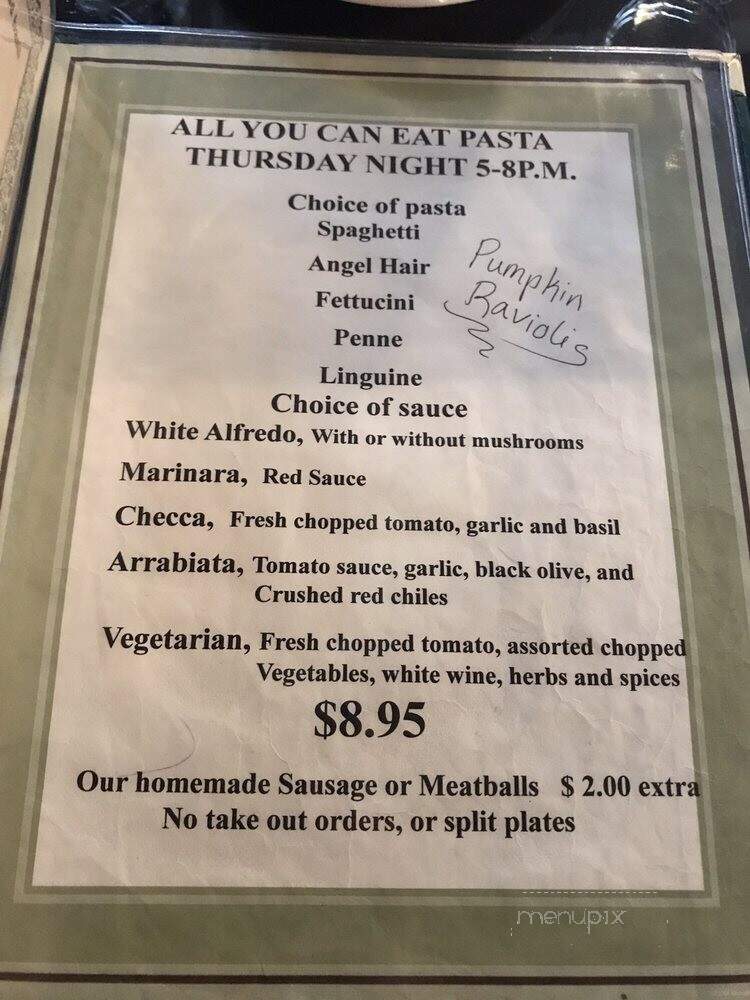 ALL YOU CAN EAT PASTA
THURSDAY NIGHT 5-8P.M.
Choice of pasta
Spaghetti
Angel Hair
Fettucini
Penne
Linguine
Pumpkin
Raviolis
Choice of sauce
White Alfredo, With or without mushrooms
Marinara, Red Sauce
Checca, Fresh chopped tomato, garlic and basil
Arrabiata, Tomato sauce, garlic, black olive, and
Crushed red chiles
Vegetarian, Fresh chopped tomato, assorted chopped
Vegetables, white wine, herbs and spices
$8.95
Our homemade Sausage or Meatballs $ 2.00 extra
No take out orders, or split plates
menupix